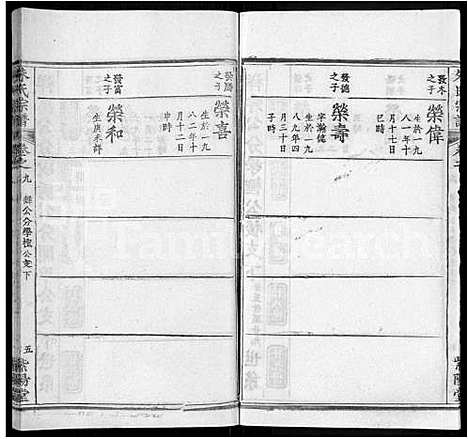 發本
之子
榮偉
生於一九
八一年十
月十七
巳時
發德
之子
榮壽
字瀚德
生於一九
八九年四
月二十日
子時
發勝
之子
榮喜
生於一九
八二年十
月十二日
申時
發富
之子
榮和
生庚未詳
朱氏宗譜
卷之九
公分學優公支下
五
紫陽堂
紫陽堂
FamilySearch